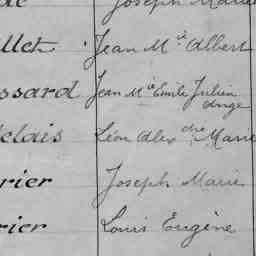 Joseph Marie
llet Jean M.ie Albert
ssard Jean M.ie Emile Julien
Ange
lelais Léon Alex.dre Marie
rier Joseph Marie
rier Louis Eugène